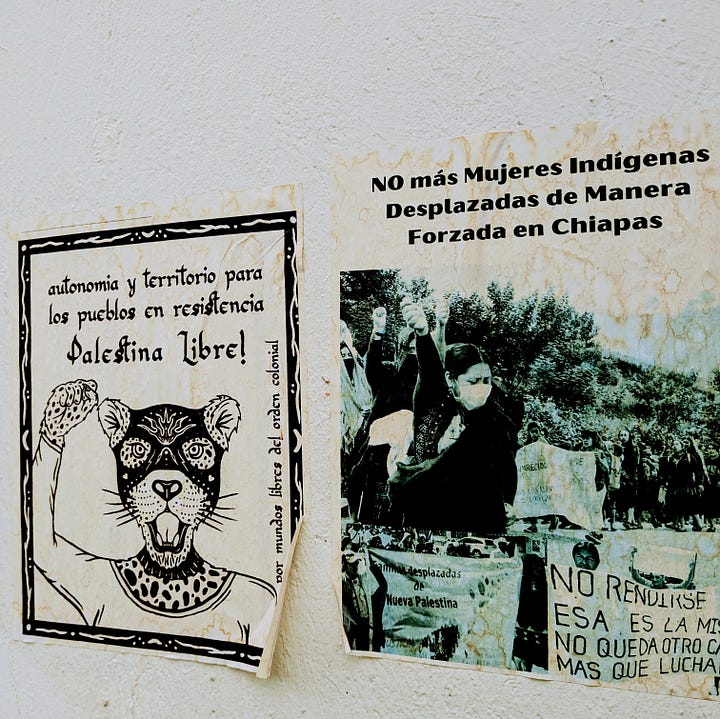 autonomia y territorio para
los pueblos en resistencia
Palestina Libre!
por mundos libres del orden colonial
NO más Mujeres Indígenas
Desplazadas de Manera
Forzada en Chiapas
desplazadas
de
Nueva Palestina
NO RENDIRSE
ESA ES LA
NO QUEDA OTRO
MAS QUE